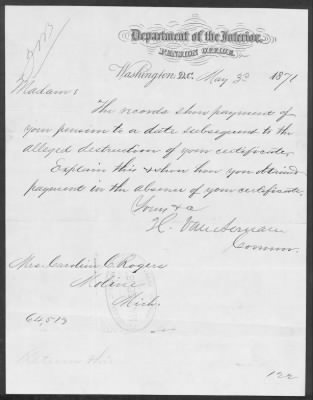 Department of the Interior,
PENSION OFFICE,
Washington, D.C. May 3d 1871
Madam:
The records show payment of
your pension to a date subsequent to the
alleged destruction of your certificate.
Explain this & show how you obtained
payment in the absence of your certificate.
Yours &c
H. Van Aernam
Commr.
Mrs. Caroline C. Rogers
Moline
Mich.
64,513
Return this
122